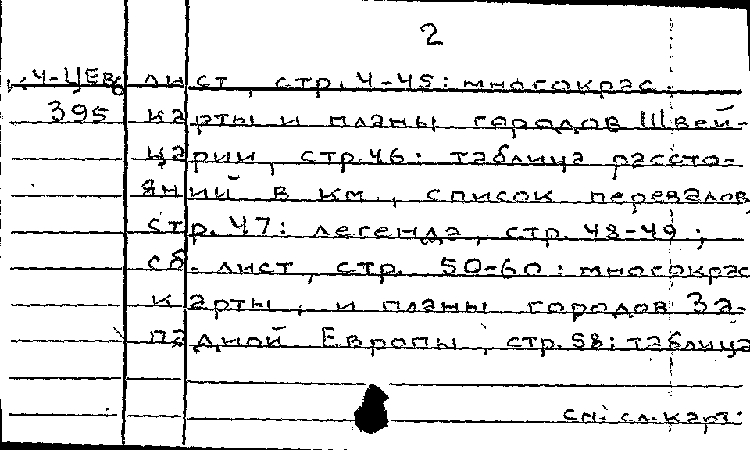 2
Ч-ЦЕв лист, стр. 4-45: многокрас.
395 карты и планы городов Швей-
царии, стр. 46: таблица рассто-
яний в км, список перевалов,
стр. 47: легенда, стр. 48-49;
сб. лист, стр. 50-60: многокрас
карты, и планы городов За-
падной Европы, стр. 58: таблица
см. сл. карт.